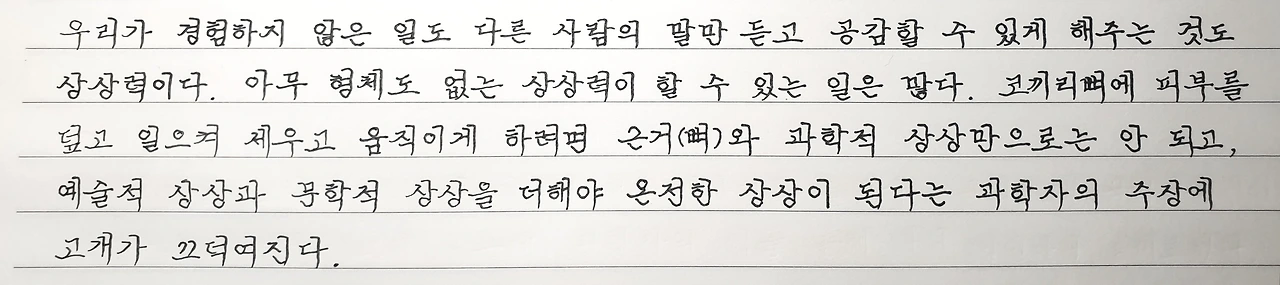 우리가 경험하지 않은 일도 다른 사람의 말만 듣고 공감할 수 있게 해주는 것도
상상력이다. 아무 형체도 없는 상상력이 할 수 있는 일은 많다. 코끼리뼈에 피부를
덮고 일으켜 세우고 움직이게 하려면 근거(뼈)와 과학적 상상만으로는 안 되고,
예술적 상상과 문학적 상상을 더해야 온전한 상상이 된다는 과학자의 주장에
고개가 끄덕여진다.